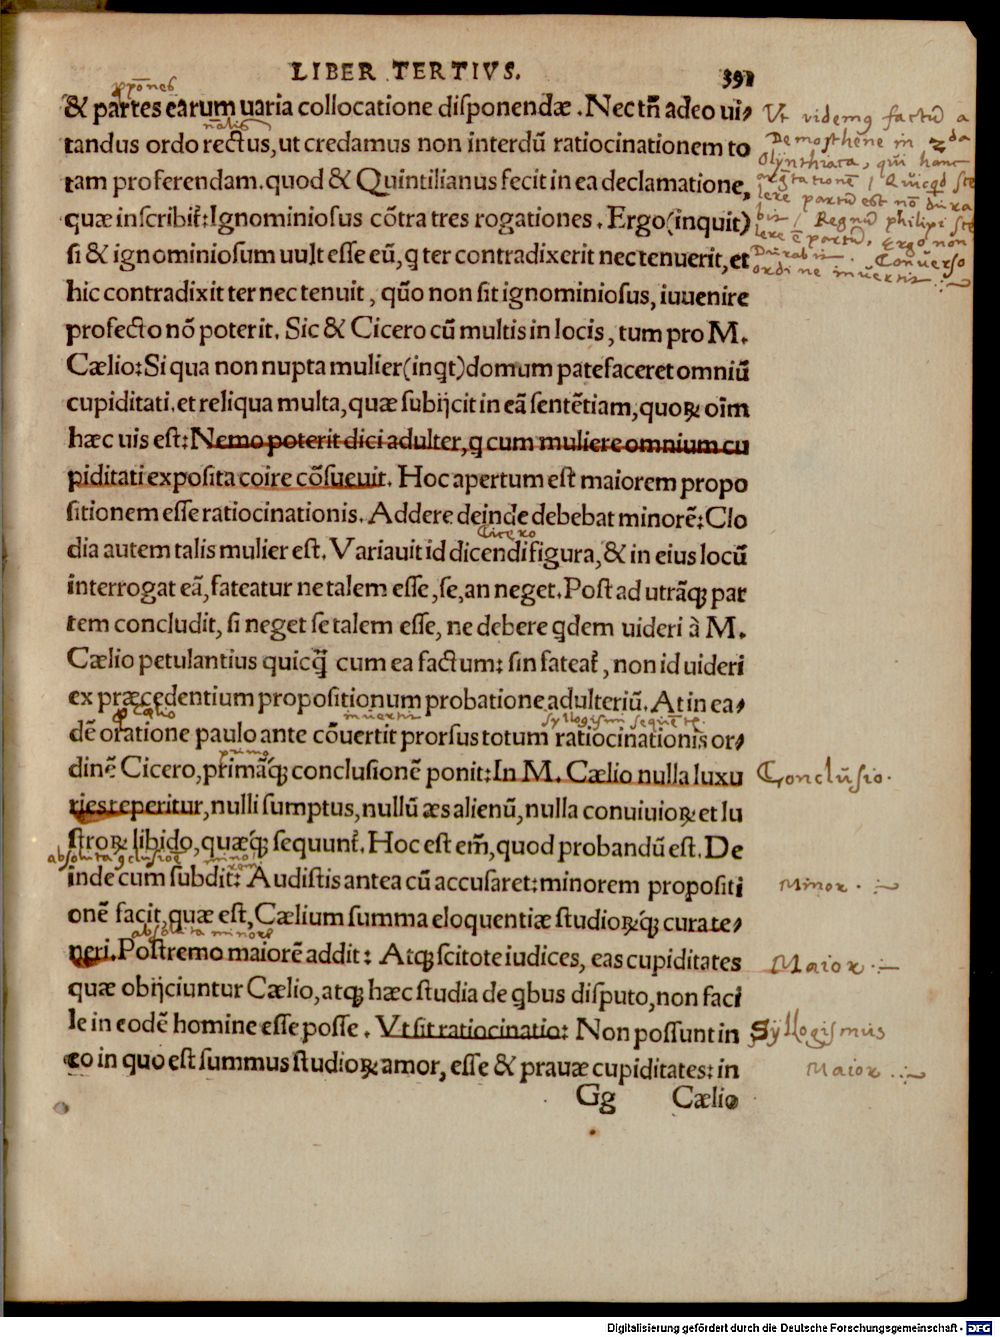 LIBER TERTIVS. 391
& partes earum uaria collocatione disponendæ. Nec tñ adeo ui,
tandus ordo rectus, ut credamus non interdũ ratiocinationem to
tam proferendam. quod & Quintilianus fecit in ea declamatione,
quæ inscribiť: Ignominiosus cõtra tres rogationes. Ergo (inquit)
si & ignominiosum uult esse eũ, q ter contradixerit nec tenuerit, et
hic contradixit ter nec tenuit, quõ non sit ignominiosus, iuuenire
profecto nõ poterit. Sic & Cicero cũ multis in locis, tum pro M.
Cælio: Si qua non nupta mulier (inqt) domum patefaceret omniũ
cupiditati. et reliqua multa, quæ subijcit in eã sentẽtiam, quoꝝ oĩm
hæc uis est: Nemo poterit dici adulter, q cum muliere omnium cu
piditati exposita coire cõsueuit. Hoc apertum est maiorem propo
sitionem esse ratiocinationis. Addere deinde debebat minorẽ: Clo
dia autem talis mulier est. Variauit id dicendi figura, & in eius locũ
interrogat eã, fateatur ne talem esse, se, an neget. Post ad utrãq; par
tem concludit, si neget se talem esse, ne debere qdem uideri à M.
Cælio petulantius quicq̃ cum ea factum: sin fateať, non id uideri
ex præcedentium propositionum probatione adulteriũ. At in ea,
dẽ oratione paulo ante cõuertit prorsus totum ratiocinationis or,
dinẽ Cicero, primãq; conclusionẽ ponit: In M. Cælio nulla luxu
ries reperitur, nulli sumptus, nullũ æs alienũ, nulla conuiuioꝝ et lu
stroꝝ libido, quæq; sequunť. Hoc est em̃, quod probandũ est. De
inde cum subdit: Audistis antea cũ accusaret: minorem propositi
onẽ facit, quæ est, Cælium summa eloquentiæ studioꝝq; cura te,
neri. Postremo maiorẽ addit: Atq; scitote iudices, eas cupiditates
quæ obijciuntur Cælio, atq; hæc studia de qbus disputo, non faci
le in eodẽ homine esse posse. Vt sit ratiocinatio: Non possunt in
eo in quo est summus studioꝝ amor, esse & prauæ cupiditates: in
Gg Cælio
Vt videmq factũ a
Demosthẽne in 2da
Olynthiaca, qui hanc
Regnũ philipi
Ergo non
Durabit. Conũerso
ordine inũertit
Cicero
ꝓ Cælio
inuertit
syllogismi
primo
Conclũsio.
absoluta
Minor.
absoluta minore
Maior.
Syllogismus
Maior.
Digitalisierung gefördert durch die Deutsche Forschungsgemeinschaft - DFG